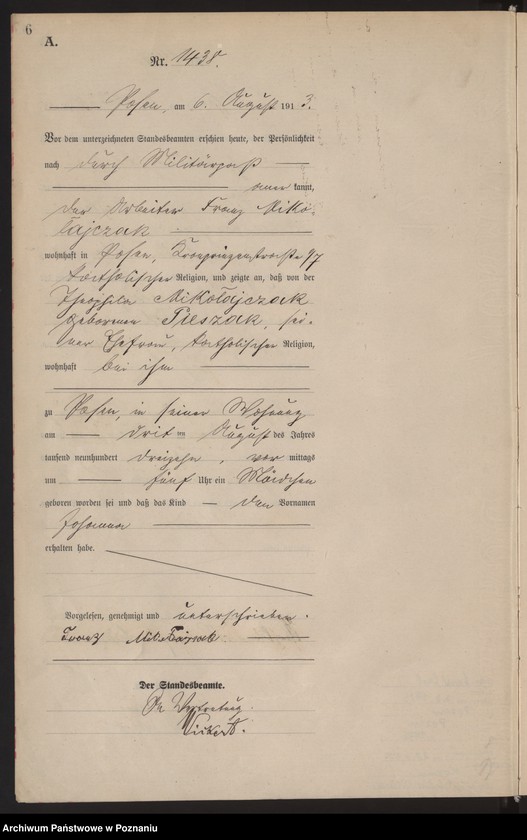 6
A.
Nr. 1438.
Posen, am 6. August 1913.
Vor dem unterzeichneten Standesbeamten erschien heute, der Persönlichkeit
nach durch Militärpaß
anerkannt,
der Arbeiter Franz Miko-
łajczak
wohnhaft in Posen, Kronprinzenstraße 97
katholischer Religion, und zeigte an, daß von der
Theophila Mikołajczak
geborenen Pieszak, sei-
ner Ehefrau, katholischer Religion,
wohnhaft bei ihm
zu Posen, in seiner Wohnung
am August des Jahres
tausend neunhundert dreizehn, vor mittags
um fünf Uhr ein Mädchen
geboren worden sei und daß das Kind den Vornamen
Johanna
erhalten habe.
Vorgelesen, genehmigt und unterschrieben.
Franz Mikołajczak
Der Standesbeamte.
In Vertretung.
Archiwum Państwowe w Poznaniu